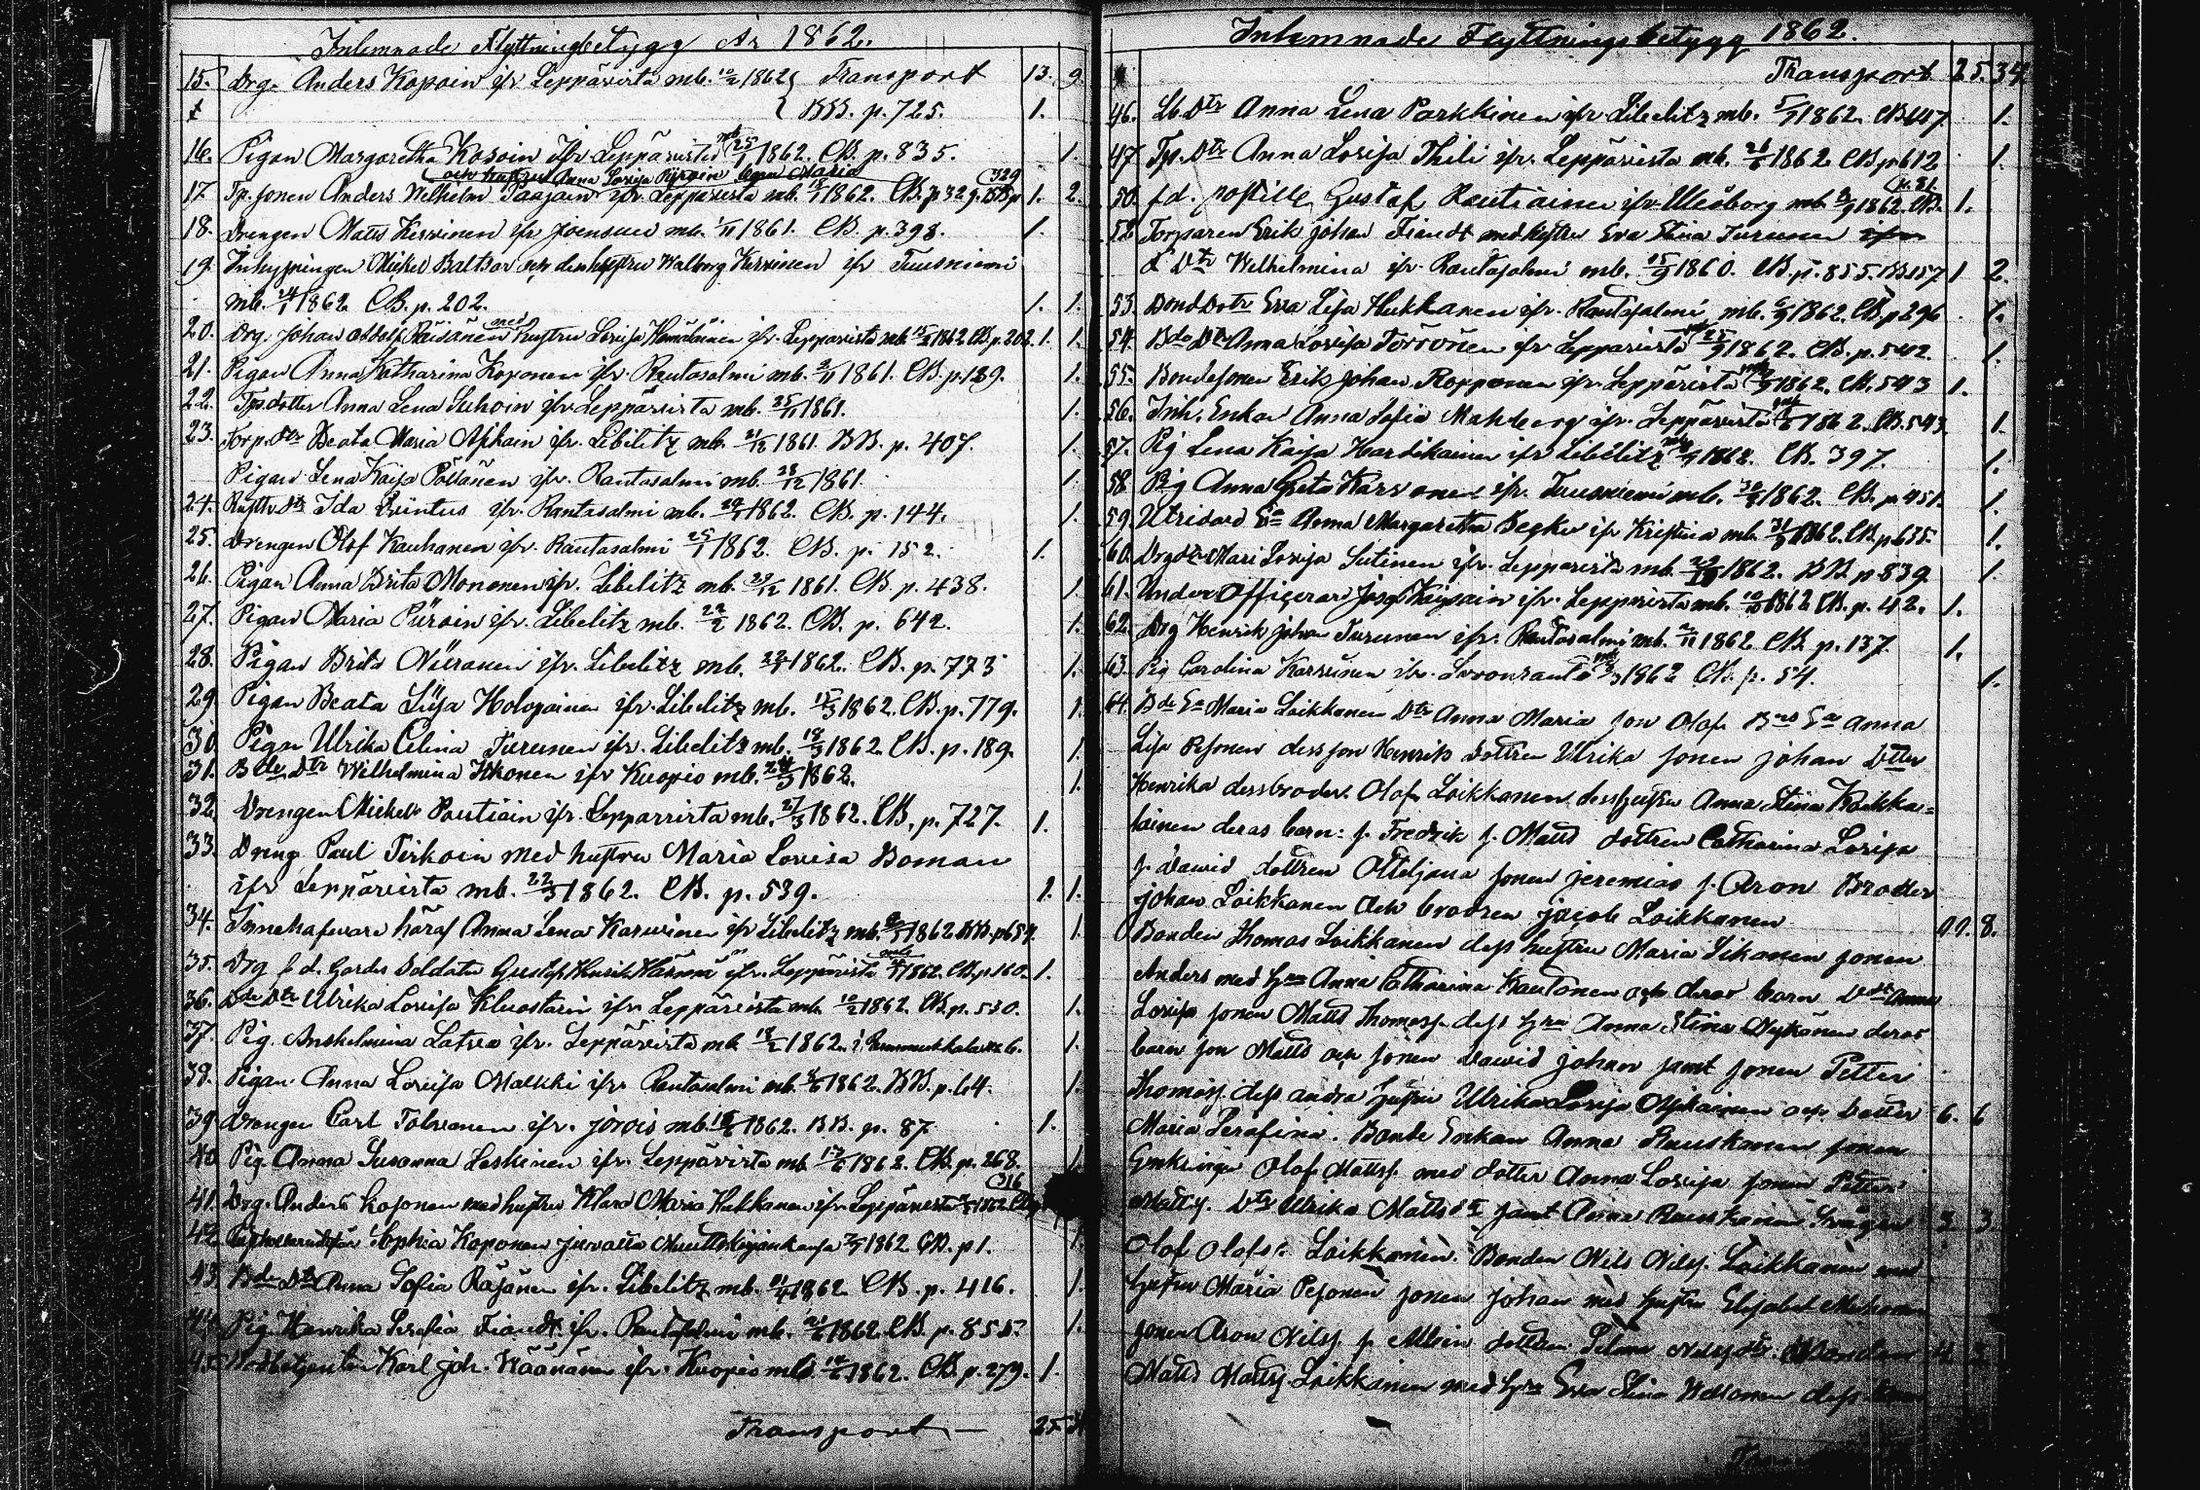 Inlemnade Flyttningsbetygg År 1862.
15. Drg. Anders Kopoin ifr Leppävirta mb. 10/2 1862 Transport 13. 9.
BB. p. 725. 1.
16. Pigan Margaretha Kosoin ifr Leppävirta mb 25/1 1862. CB. p. 835. 1.
och hustru Anna Lovisa
17. Tp. sonen Anders Wilhelm Paajain ifr. Leppävirta mb. 1862. CB. p 329. 1. 2.
18. Drengen Matts Kervinen ifr Joensuu mb. 1/11 1861. CB. p. 398. 1.
19. Inhysingen Mickel Baltsar och dess hustru Walborg Kervinen ifr Tuusniemi
mb. 24/1 1862 CB. p. 202. 1. 1.
20. Drg. Johan Adolf Räisänen med hustru Lovisa Hämäläinen ifr. Leppävirta mb. 1862 CB. p. 202. 1. 1.
21. Pigan Anna Katharina Koponen ifr. Rantasalmi mb. 1861. CB. p. 189. 1.
22. Tps. dotter Anna Lena Suhoin ifr Leppävirta mb. 25/11 1861. 1.
23. Torp. dtr Beata Maria Asikain ifr. Libelitz mb. 21/12 1861. BB. p. 407. 1.
Pigan Lena Kaisa Pöllänen ifr. Rantasalmi mb. 28/12 1861.
24. Ida ifr. Rantasalmi mb. 1862. CB. p. 144. 1.
25. Drengen Olof Kauhanen ifr. Rantasalmi 25/1 1862. CB. p. 152. 1.
26. Pigan Anna Brita Mononen ifr. Libelitz mb. 29/12 1861. CB. p. 438. 1.
27. Pigan Maria Püroin ifr. Libelitz mb. 22/2 1862. CB. p. 642. 1.
28. Pigan Brita Niiranen ifr. Libelitz mb. 1862. CB. p. 773 1.
29. Pigan Beata Lüsa Holopainen ifr. Libelitz mb. 15/3 1862. CB. p. 779. 1.
30. Pigan Ulrika Celina Turunen ifr. Libelitz mb. 18/3 1862. CB. p. 189. 1.
31. Bde Dtr Wilhelmina Ikonen ifr Kuopio mb. 24/3 1862. 1.
32. Drengen Mickel Rautiain ifr. Leppavirta mb. 27/3 1862. CB. p. 727. 1.
33. Dreng Paul Tirkoin med hustru Maria Lovisa Boman
ifr Leppävirta mb. 22/3 1862. CB. p. 539. 1. 1.
34. Anna Lena Karvinen ifr Libelitz mb. 1862 BB. p 654. 1.
35. Drg f. d. Gardes Soldaten Gustaf Henrik ifr. Leppävirta mb 1862. CB. p 160. 1.
36. Bde Dtr Ulrika Lovisa ifr. Leppävirta mb. 10/2 1862. CB. p. 530. 1.
37. Pig. Anshelmina ifr. Leppävirta mb. 18/2 1862. 1.
38. Pigan Anna Lovisa Malkki ifr Rantasalmi mb. 1862. BB. p. 64. 1.
39. Drengen Carl Tolvanen ifr. Jorois mb. 1862. BB. p. 87 1.
40. Pig. Anna Susanna Laskinen ifr. Leppävirta mb. 17/6 1862. CB. p. 268. 1.
41. Drg. Anders med hustru Klara Maria Hukkanen ifr Leppävirta 1862 CB 316
42. Sophia Koponen 1862 CB. p 1. 1.
43. Bde Dtr Anna Sofia Räsänen ifr. Libelitz mb. 1862 CB. p. 416. 1.
44. Pig. Henrika Serafia Fiandt ifr. Rantasalmi mb. 1862. CB. p. 855. 1.
45. Karl Joh. Väänänen ifr. Kuopio mb. 1862. CB. p. 279. 1.
Transport 25. 34
Inlemnade Flyttningsbetygg 1862.
Transport 25. 34.
46. Dtr Anna Lena Parkkinen ifr Libelitz mb. 5/7 1862. CB 647 1.
47. Tp. Dtr Anna Lovisa Thili ifr. Leppävirta mb. 1862 CB p 612 1.
50. f. d. Gustaf Rautiainen ifr. Uleåborg mb 1862. CB. p. 81. 1.
52 Torparen Erik Johan Fiandt med hustru Eva Stina Turunen
Dtr Wilhelmina ifr. Rantasalmi mb. 15/9 1860. CB. p. 855. BB 157 1 2.
53. Bond Dotr Eva Lisa Hukkanen ifr. Rantasalmi mb. 1862. CB. p 296 1.
54. Bde Dtr Anna Lovisa Törrönen ifr Leppävirta mb 1862. CB. p. 542. 1.
55. Bondesonen Erik Johan Ropponen ifr. Leppävirta 1862. CB. 543 1.
56. Inh. Enkan Anna Sofia ifr. Leppävirta 1862. CB. 543. 1.
57. Pig Lena Kaisa Hardikainen ifr Libelitz 1862. CB. 397. 1.
58. Pig Anna Greta ifr. Tuusniemi mb. 1862. CB. p 451. 1.
59. Anna Margaretha ifr Kristina mb. 1862. CB p 635. 1.
60. Drg dtr Mari Lovisa Sutinen ifr. Leppävirta mb. 1862. BB. p 839. 1.
61. Under Officeren Josef ifr. Leppävirta mb. 1862 CB. p. 42. 1.
62. Drg Henrik Johan Turunen ifr. Rantasalmi mb. 1862 CB p. 137. 1.
63. Pig Carolina Karvinen ifr. Savonranta 1862 CB. p. 54. 1.
64. Bde Maria Loikkanen Dtr Anna Maria son Olof Anna
Lisa Pesonen dess son Henrik dottren Ulrika sonen Johan Dotter
Henrika dess broder Olof Loikkanen, dess hustru Anna Stina Kaikka=
lainen deras barn: s. Fredrik s. Matts dottren Catharina Lovisa
s. David dottren Ottiljana sonen Jeremias s. Aron Broder
Johan Loikkanen och brodren Jacob Loikkanen 11. 8.
Bonden Thomas Loikkanen dess hustru Maria Sikanen sonen
Anders med Anna Catharina Kautonen och deras barn Anna
Lovisa sonen Matts Thomass. dess Anna Stina Nykänen deras
barn son Matts och sonen David Johan samt sonen Petter
Thomass. dess andra hustru Ulrika Lovisa Asikainen och dotter 6. 6
Maria Serafina. Bonde Enkan Anna Ruuskanen sonen
Olof Mattss. med dotter Anna Lovisa sonen Petter
Mattss. Dtr Ulrika Mattsdtr samt Anna Ruuskanen Svågern 3. 3
Olof Olofss. Loikkanen. Bonden Nils Nilss. Loikkanen med
hustru Maria Pesonen sonen Johan med hustru Elisabet
sonen Aron Nilss. s. Albin dottren Selma Bonden 4. 3
Matts Mattss. Loikkanen med Eva Stina dess